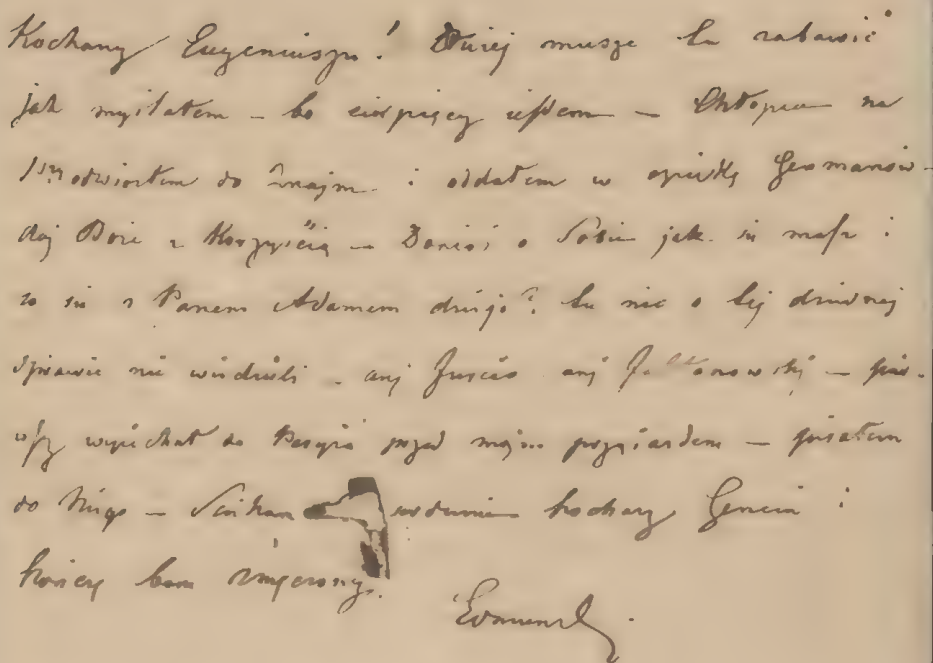 Kochany Eugeniuszu! Dłużej muszę tu zabawić
jak myślałem – bo cierpiący jestem – Chłopca na
odwiozłem do Znajm. i oddałem w opiekę Germanów –
daj Boże z Korzyścią – Donieś o Sobie jak się masz i
co się z Panem Adamem dzieje? tu nic o tej dziwnej
sprawie nie wiedzieli – anj Juścio anj – pier-
wszy wyjechał do Paryża przed mojim przyjazdem – pisałem
do Niego – Ściskam serdecznie kochany Geniu i
kończę bom zmęczony.
Edmund